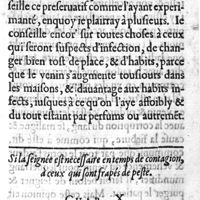 seille ce preservatif comme l'ayant experi-
menté, enquoy ie plairray à plusieurs. Ie
conseille encor' sur toutes choses à ceux
qui seront suspects d'infection, de chan-
ger bien tost de place, & d'habits, parce
que le venin s'augmente tousiours dans
les maisons, & dauantage aux habits in-
fects, iusques à ce qu'on l'aye affoibly &
du tout estaint par perfums ou autremēt.
Si la seignée est necessaire en temps de contagion,
à ceux qui sont frapés de peste.